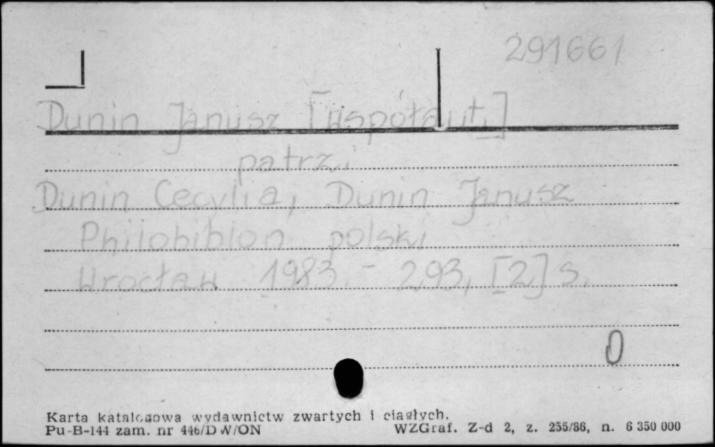 291661
Dunin Janusz [Współaut.]
patrz:
Dunin Cecylia, Dunin Janusz
Philobiblon polski
Wrocław 1983. - 293, [2] s.
0
Karta katalogowa wydawnictw zwartych i ciągłych.
Pu-B-144 zam. nr 446/DW/ON WZGraf. Z-d 2, z. 255/86, n. 6 350 000